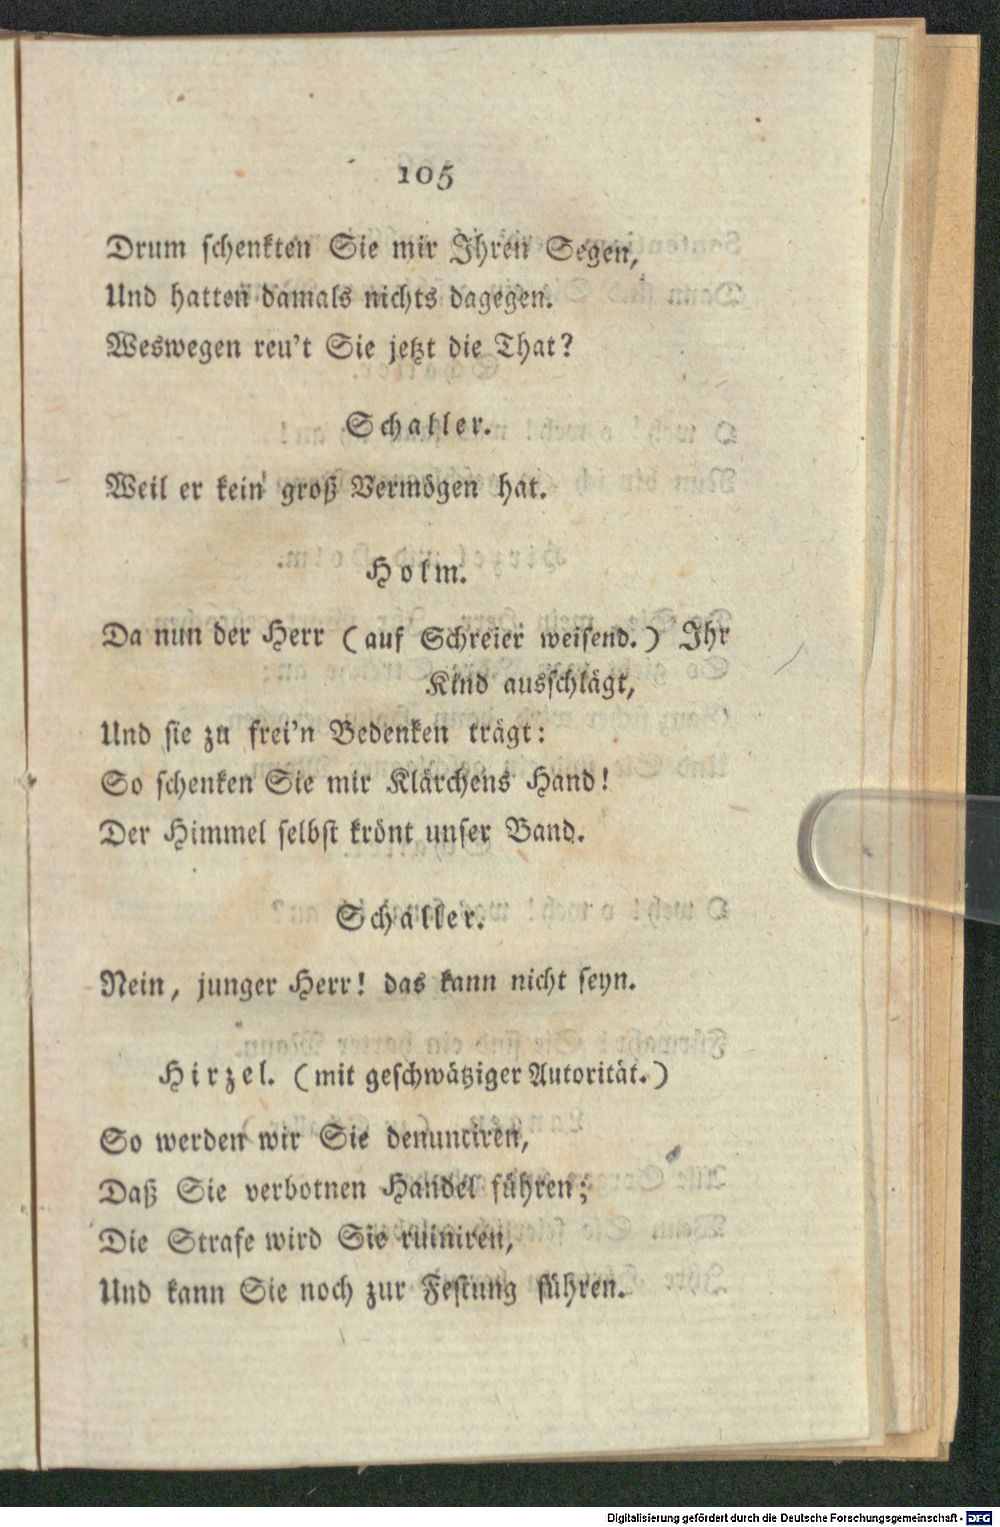 105
Drum schenkten Sie mir Ihren Segen,
Und hatten damals nichts dagegen.
Weswegen reu't Sie jetzt die That?
Schaller.
Weil er kein groß Vermögen hat.
Holm.
Da nun der Herr (auf Schreier weisend.) Ihr
Kind ausschlägt,
Und sie zu frei'n Bedenken trägt:
So schenken Sie mir Klärchens Hand!
Der Himmel selbst krönt unser Band.
Schaller.
Nein, junger Herr! das kann nicht seyn.
Hirzel. (mit geschwätziger Autorität.)
So werden wir Sie denunciren,
Daß Sie verbotnen Handel führen;
Die Strafe wird Sie ruiniren,
Und kann Sie noch zur Festung führen.
Digitalisierung gefördert durch die Deutsche Forschungsgemeinschaft - DFG